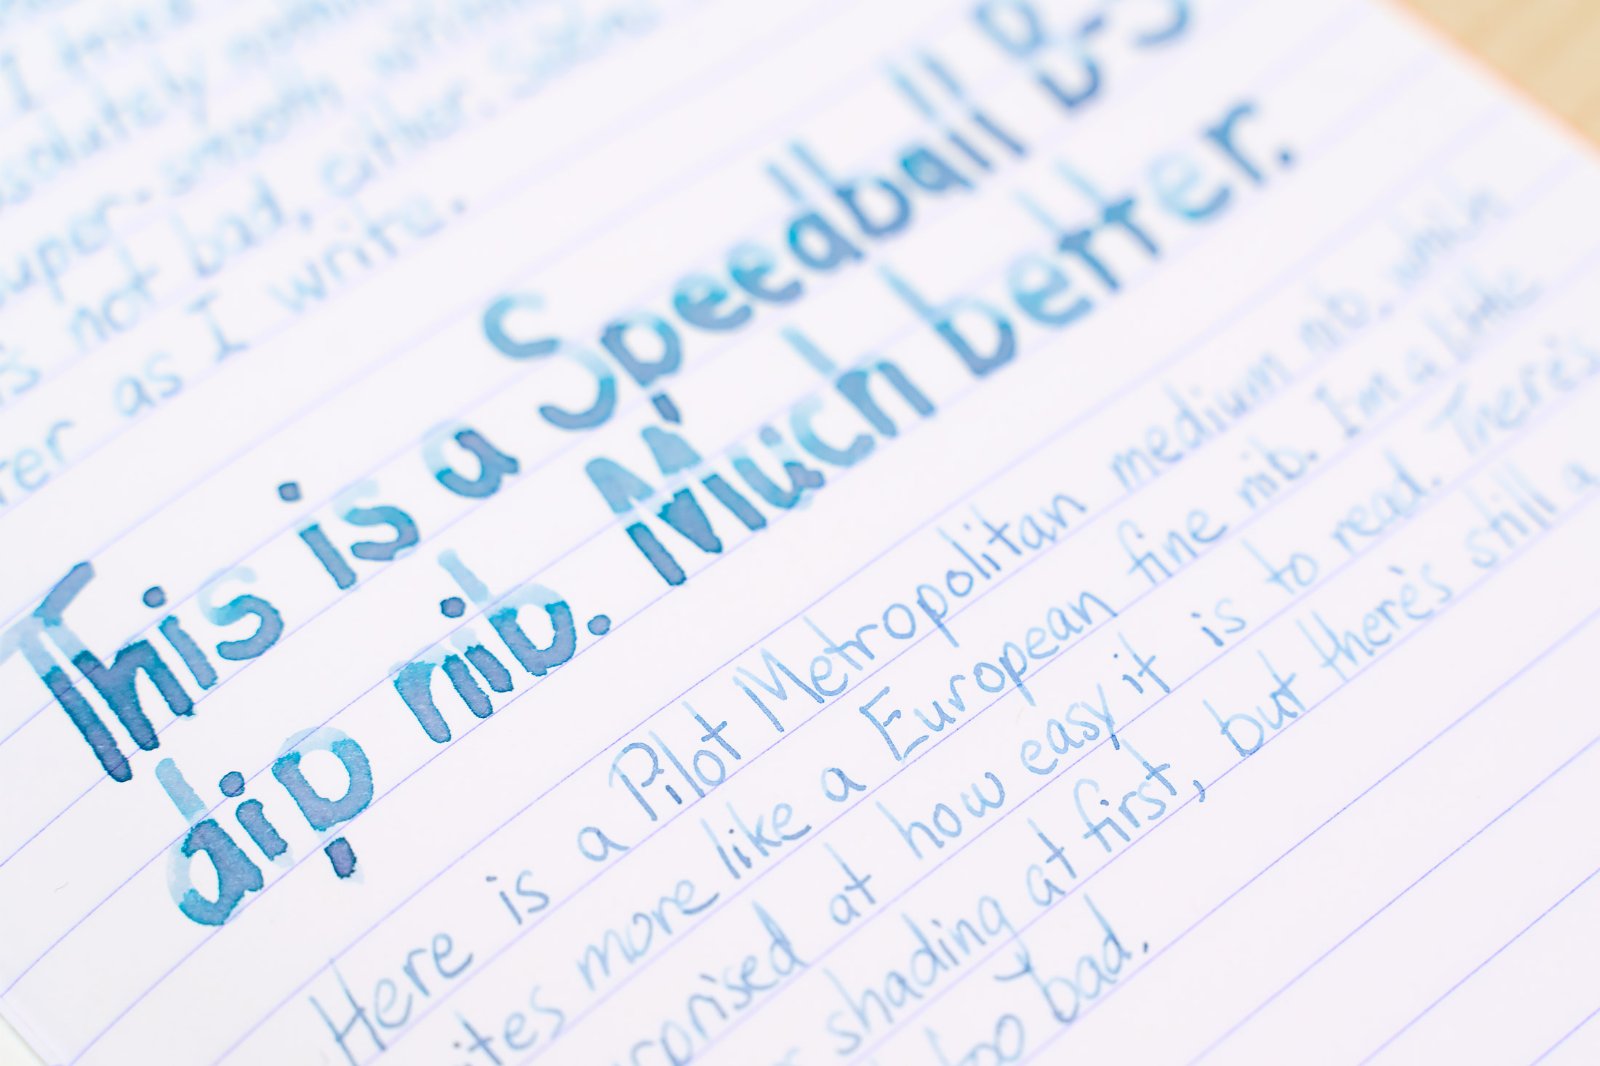 I
solutely
super. smooth
s not bad, either.
rer as I write.
This is a Speedball B-5
dip nib. Much better.
Here is a Pilot Metropolitan medium nib, which
ites more like a European fine nib. I'm a little
rprised at how easy it is to read. There's
shading at first, but there's still a
too bad.